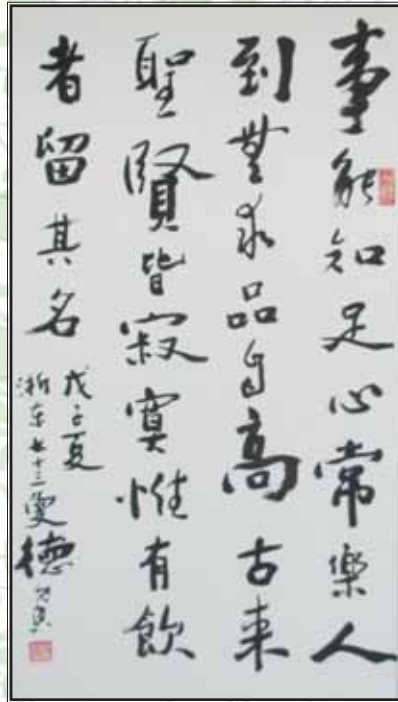 事能知足心常樂人
到無求品自高古来
聖賢皆寂寞惟有飲
者留其名
戊子夏
浙东七十三叟德